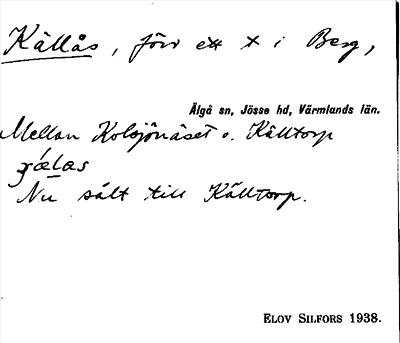 Källås, förr ett x i Berg,
Älgå sn, Jösse hd, Värmlands län.
Mellan Kolsjönäset o. Källtorp
Nu sålt till Källtorp.
ELOV SILFORS 1938.